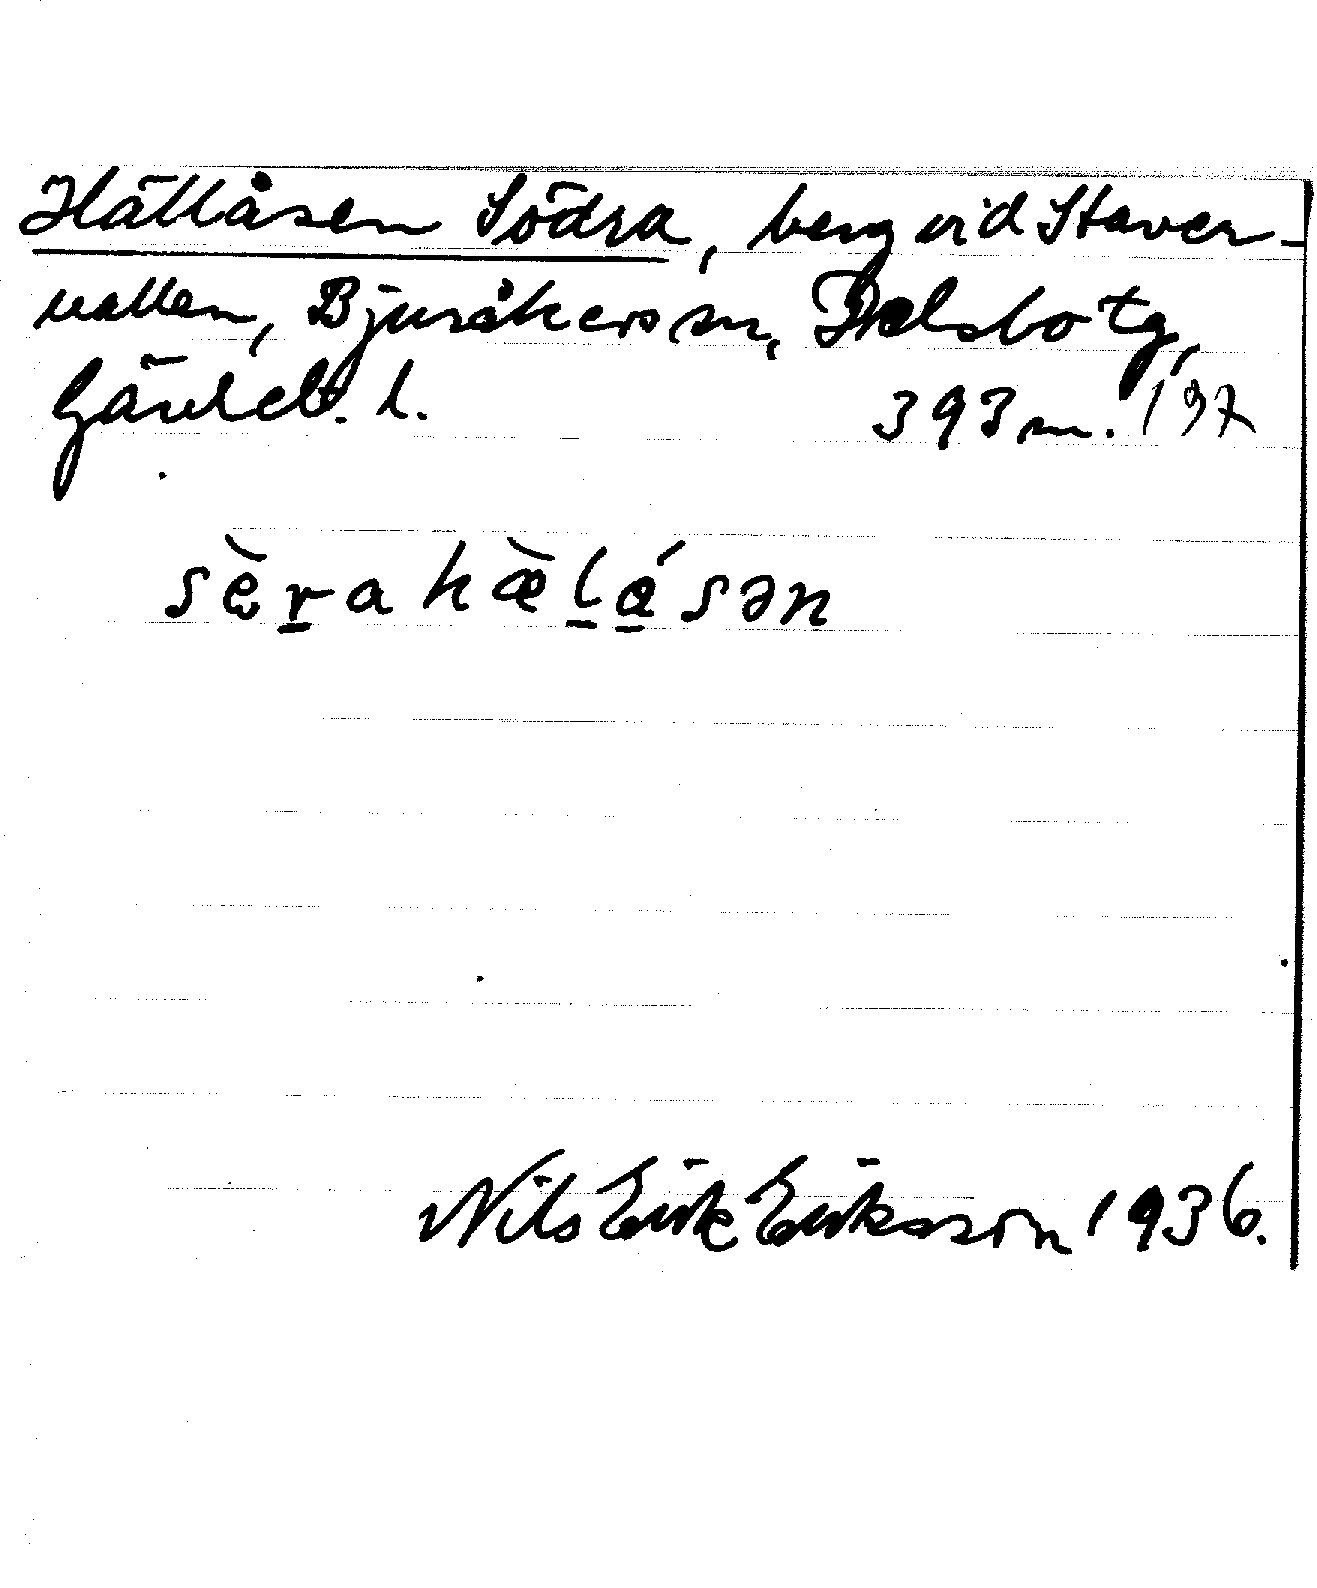 Hällåsen Södra, berg vid Staver-
vallen, Bjuråkers sn, Delsbo tg,
Gävleb. l. 393 m. 197
sę̀r̲ahæ̀l̲ǻ̲sən
Nils Erik Eriksson 1936.